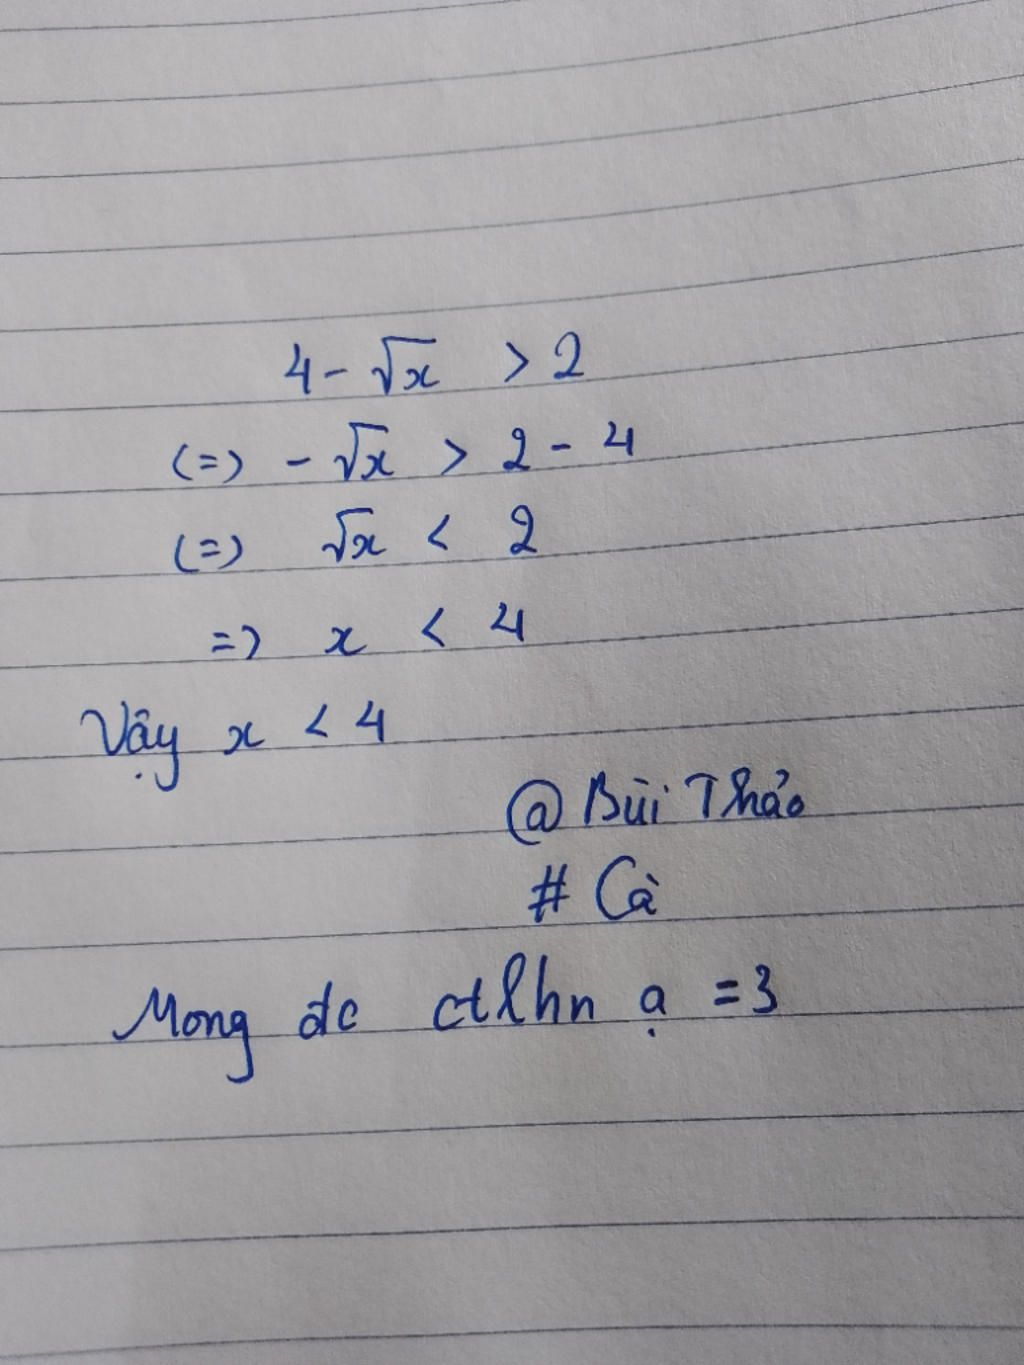 4 - √x > 2
(=) - √x > 2 - 4
(=) √x < 2
=) x < 4
Vậy x < 4
@ Bùi Thảo
# Cà
Mong đc ctlhn ạ =3